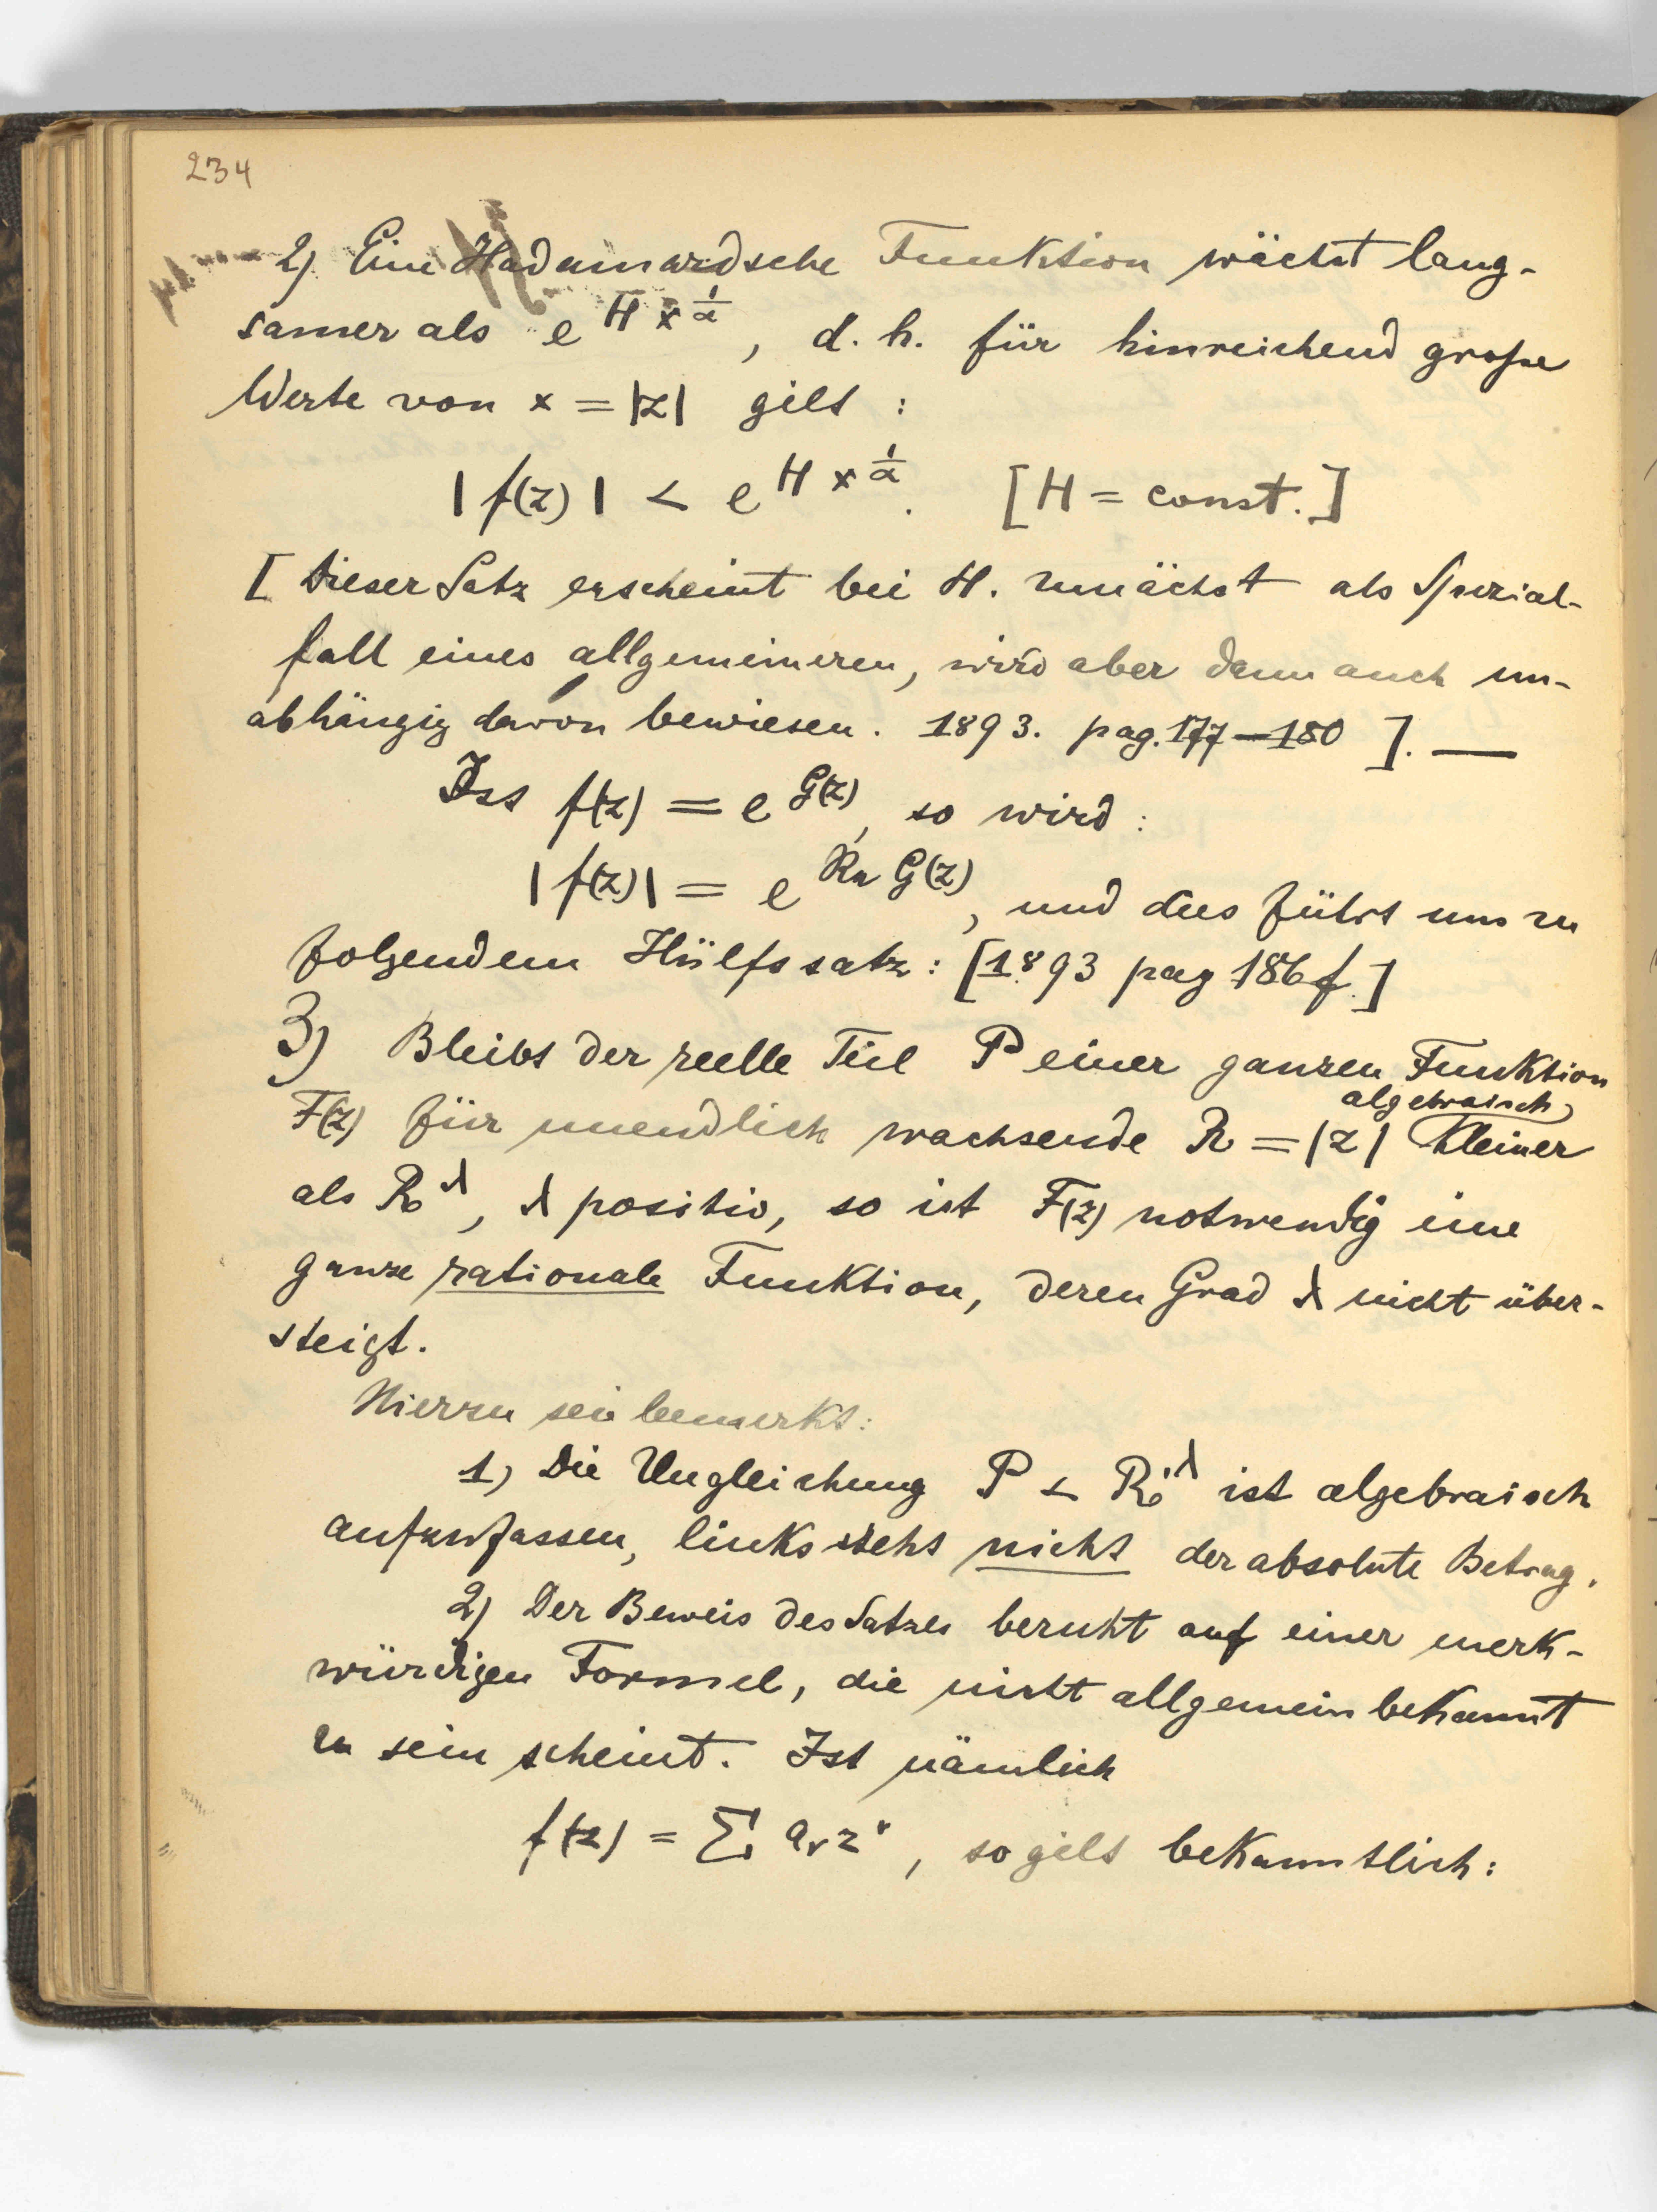 234
2) Eine Hadamardsche Funktion wächst lang-
samer als e^{H x^{1/α}}, d. h. für hinreichend große
Werte von x = |z| gilt :
|f(z)| < e^{H x^{1/α}}. [H = const.]
[Dieser Satz erscheint bei H. zunächst als Spezial-
fall eines allgemeineren, wird aber dann auch un-
abhängig davon bewiesen. 1893. pag. 177–180 ]. —
Ist f(z) = e^{G(z)}, so wird :
|f(z)| = e^{Re G(z)}, und dies führt uns zu
folgendem Hülfssatz: [1893 pag 186 f.]
3) Bleibt der reelle Teil P einer ganzen Funktion
algebraisch
F(z) für unendlich wachsende R = |z| kleiner
als R^λ, λ positiv, so ist F(z) notwendig eine
ganze rationale Funktion, deren Grad λ nicht über-
steigt.
Hierzu sei bemerkt:
1) Die Ungleichung P < R^λ ist algebraisch
aufzufassen, links steht nicht der absolute Betrag.
2) Der Beweis des Satzes beruht auf einer merk-
würdigen Formel, die nicht allgemein bekannt
zu sein scheint. Ist nämlich
f(z) = Σ a_ν z^ν, so gilt bekanntlich: